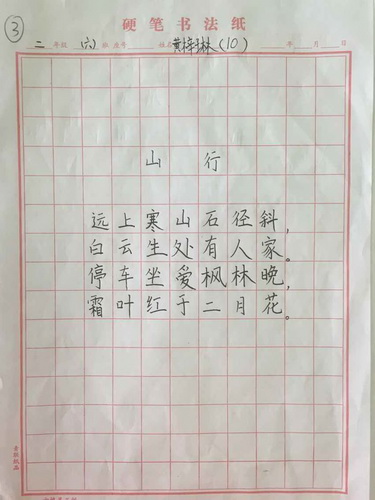 ③
硬笔书法纸
二 年级 (六) 班 座号 姓名 黄梓琳(10) 年 月 日
山行
远上寒山石径斜,
白云生处有人家。
停车坐爱枫林晚,
霜叶红于二月花。